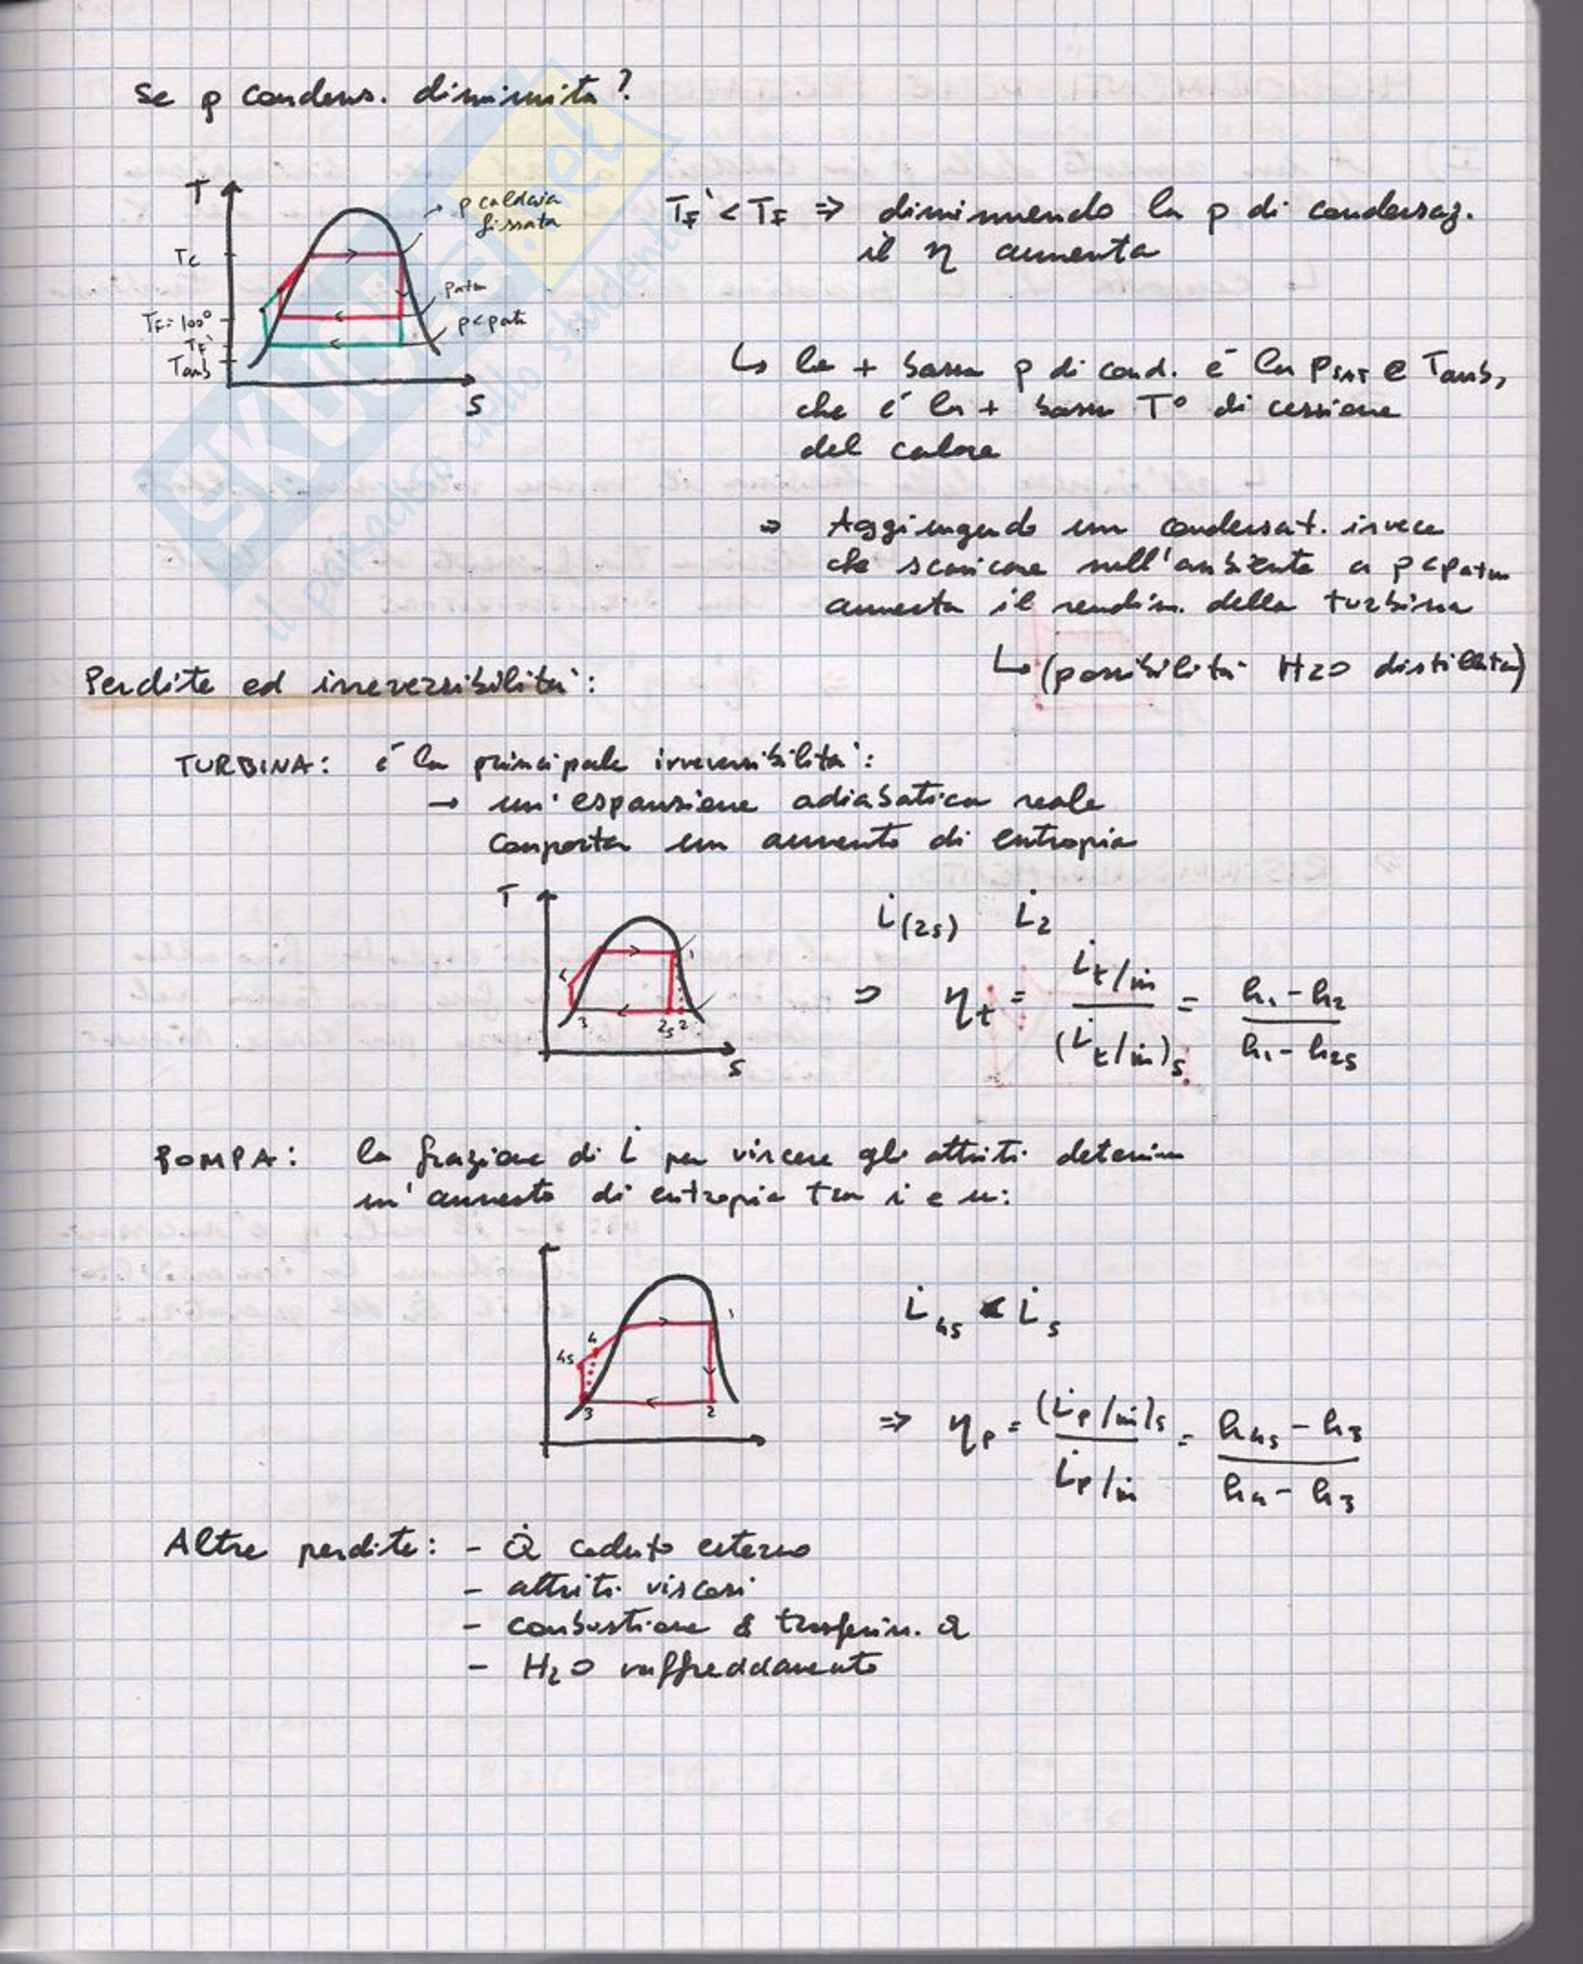 Se p condens. diminuita?
T
p caldaia
fissata
TF' < TF ⇒ diminuendo la p di condensaz.
il η aumenta
Tc
patm
TF = 100°
p<patm
TF'
Tamb
S
↳ la + bassa p di cond. è la PSAT e Tamb,
che è la + bassa T° di cessione
del calore
⇒ Aggiungendo un condensat. invece
che scaricare sull'ambiente a p<patm
aumenta il rendim. della turbina
↳ (possibilità H2O distillata)
Perdite ed irreversibilità:
TURBINA: è la principale irreversibilità:
→ un'espansione adiabatica reale
comporta un aumento di entropia
T
L̇(2s) L̇2
1
⇒ ηt = L̇t/ṁ / (L̇t/ṁ)s = h1-h2 / h1-h2s
3 2s 2
S
POMPA: la frazione di L̇ per vincere gli attriti determina
un'aumento di entropia tra i e u:
1
L̇4s < L̇s
4
4s
3 2
⇒ ηp = (L̇p/ṁ)s / L̇p/ṁ = h4s - h3 / h4 - h3
Altre perdite: - Q̇ ceduto esterno
- attriti viscosi
- combustione & trasferim. Q
- H2O raffreddamento
SKUOLA.net
il paradiso dello studente